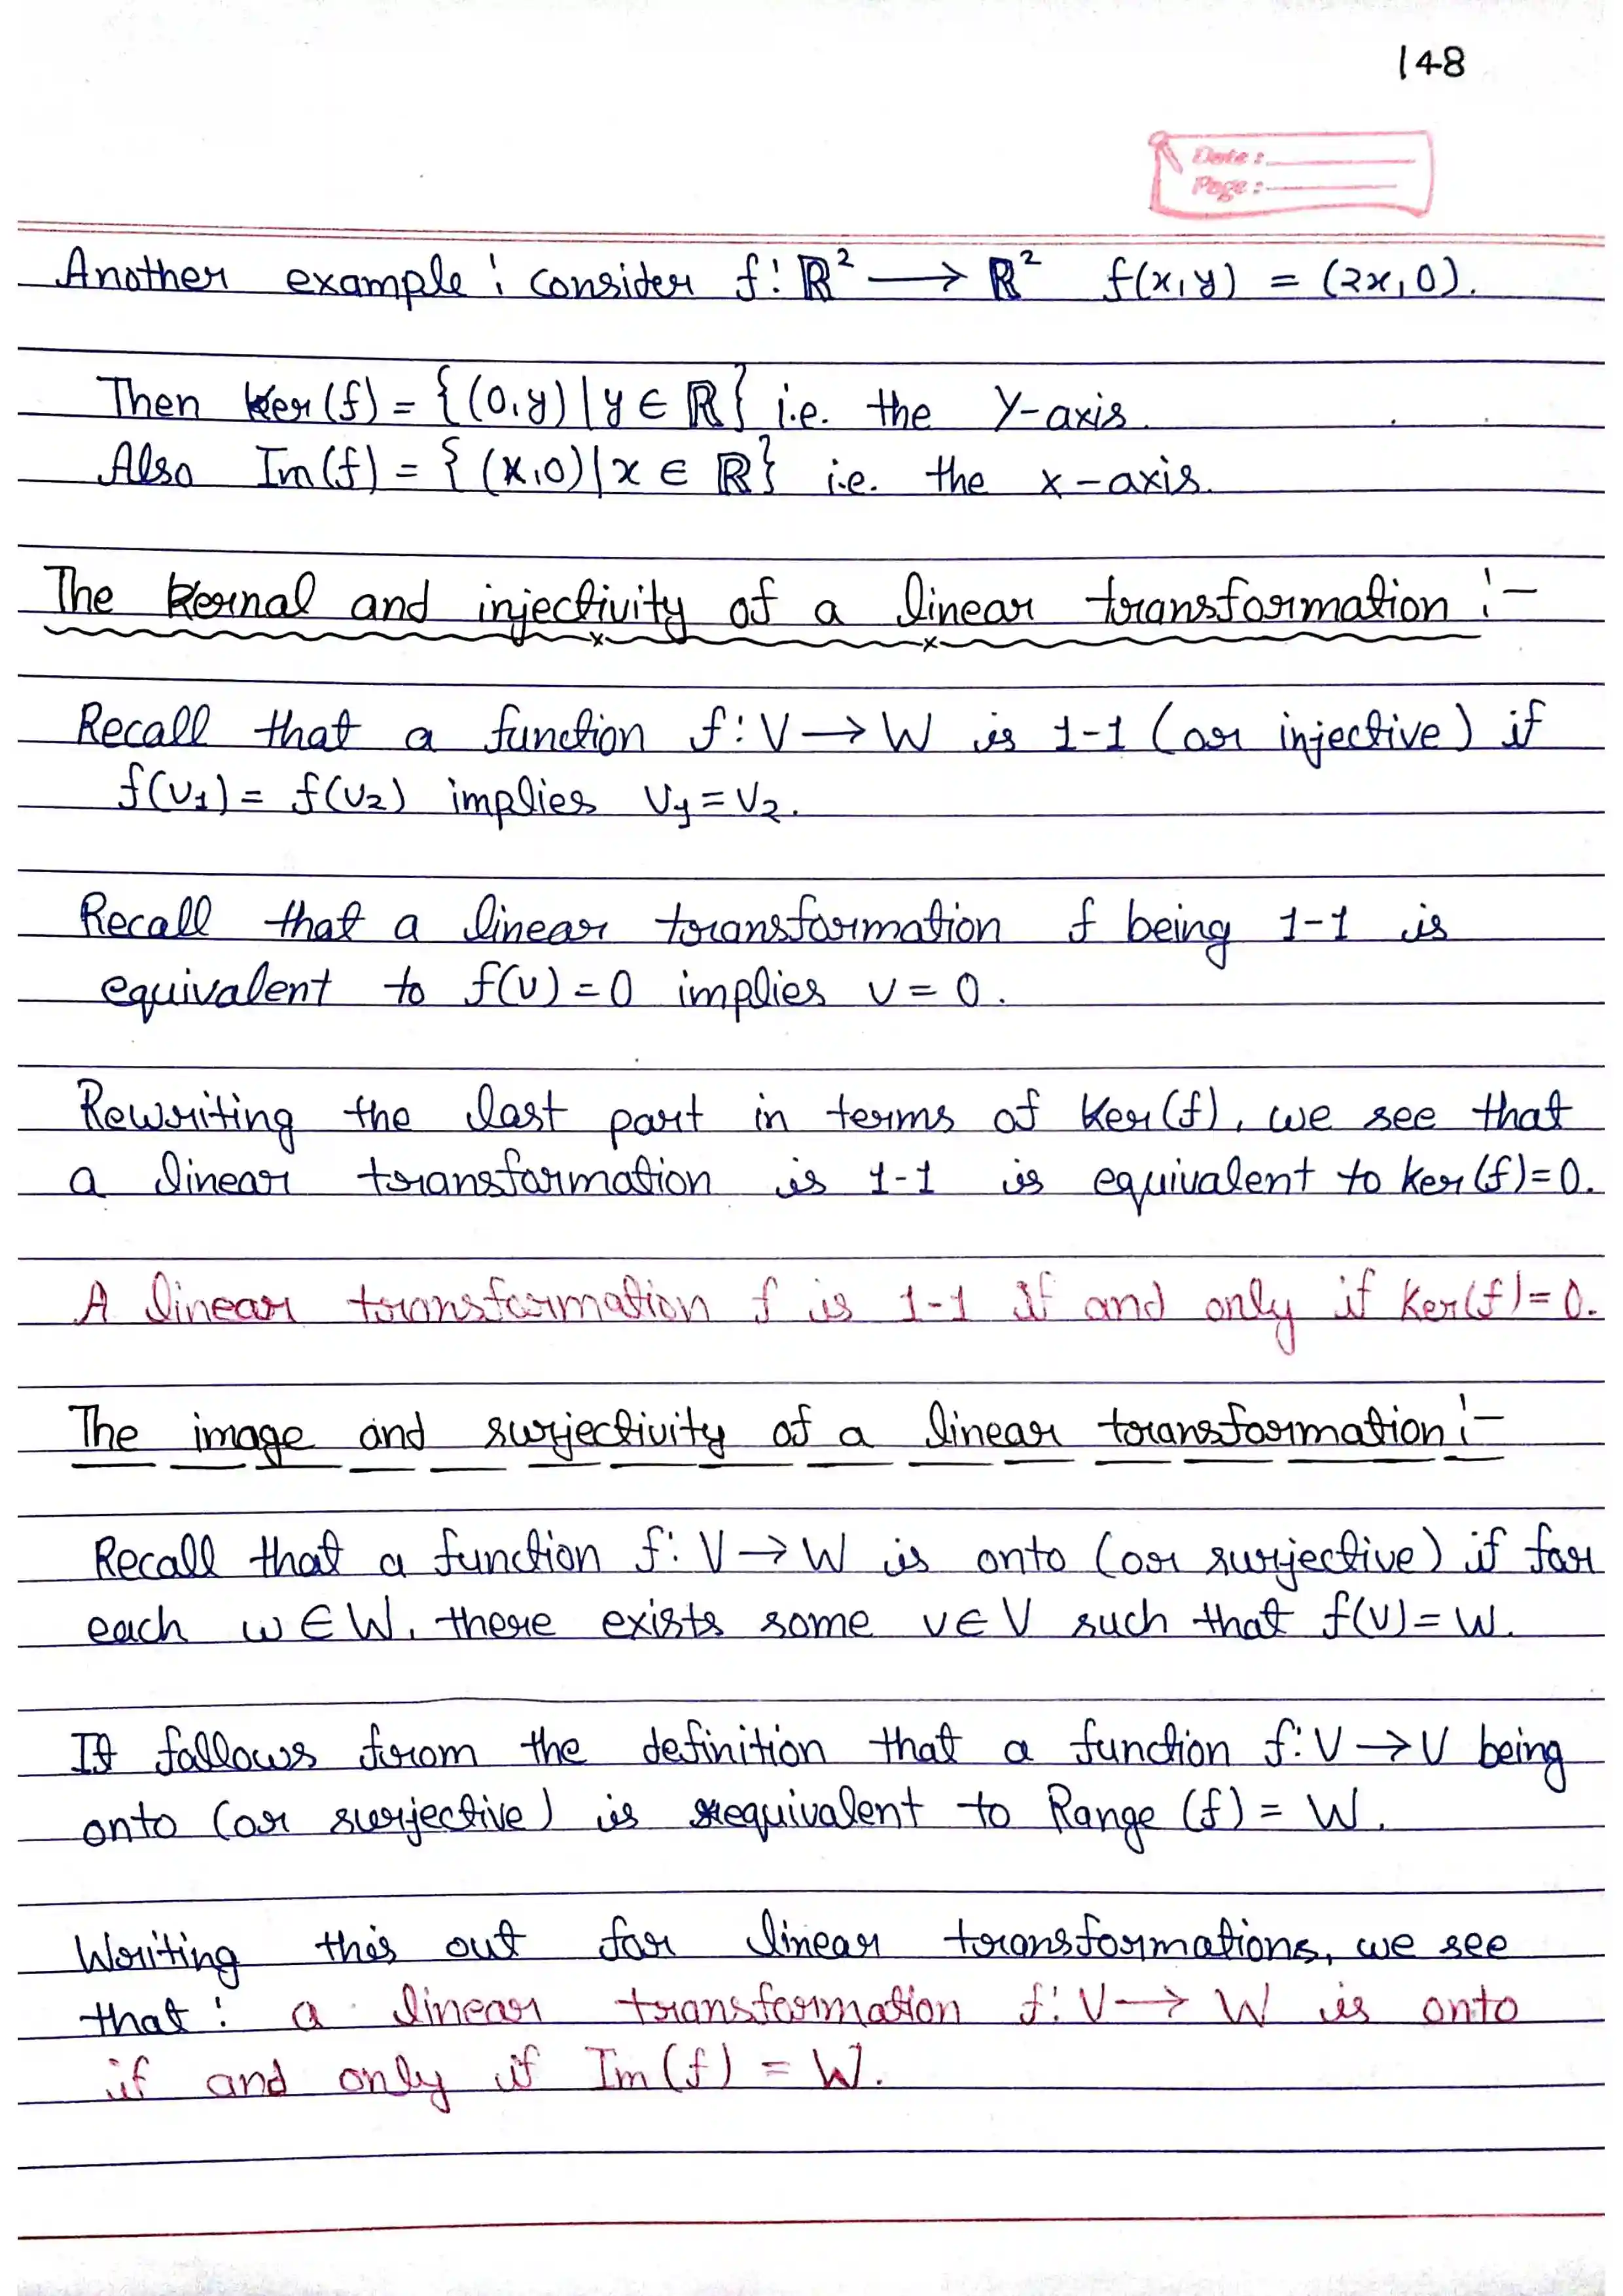 148
Date :
Page :
Another example : consider f : ℝ² ⟶ ℝ² f(x,y) = (2x,0).
Then Ker(f) = {(0,y) | y ∈ ℝ} i.e. the Y-axis.
Also Im(f) = {(x,0) | x ∈ ℝ} i.e. the x-axis.
The Kernal and injectivity of a linear transformation :-
Recall that a function f : V → W is 1-1 (or injective) if
f(v₁) = f(v₂) implies v₁ = v₂.
Recall that a linear transformation f being 1-1 is
equivalent to f(v) = 0 implies v = 0.
Rewriting the last part in terms of Ker(f), we see that
a linear transformation is 1-1 is equivalent to ker(f)=0.
A linear transformation f is 1-1 If and only if Ker(f)=0.
The image and surjectivity of a linear transformation :-
Recall that a function f : V → W is onto (or surjective) if for
each w ∈ W, there exists some v ∈ V such that f(v) = W.
It follows from the definition that a function f : V → V being
onto (or surjective) is equivalent to Range (f) = W.
Writing this out for linear transformations, we see
that : a linear transformation f : V ⟶ W is onto
if and only if Im(f) = W.